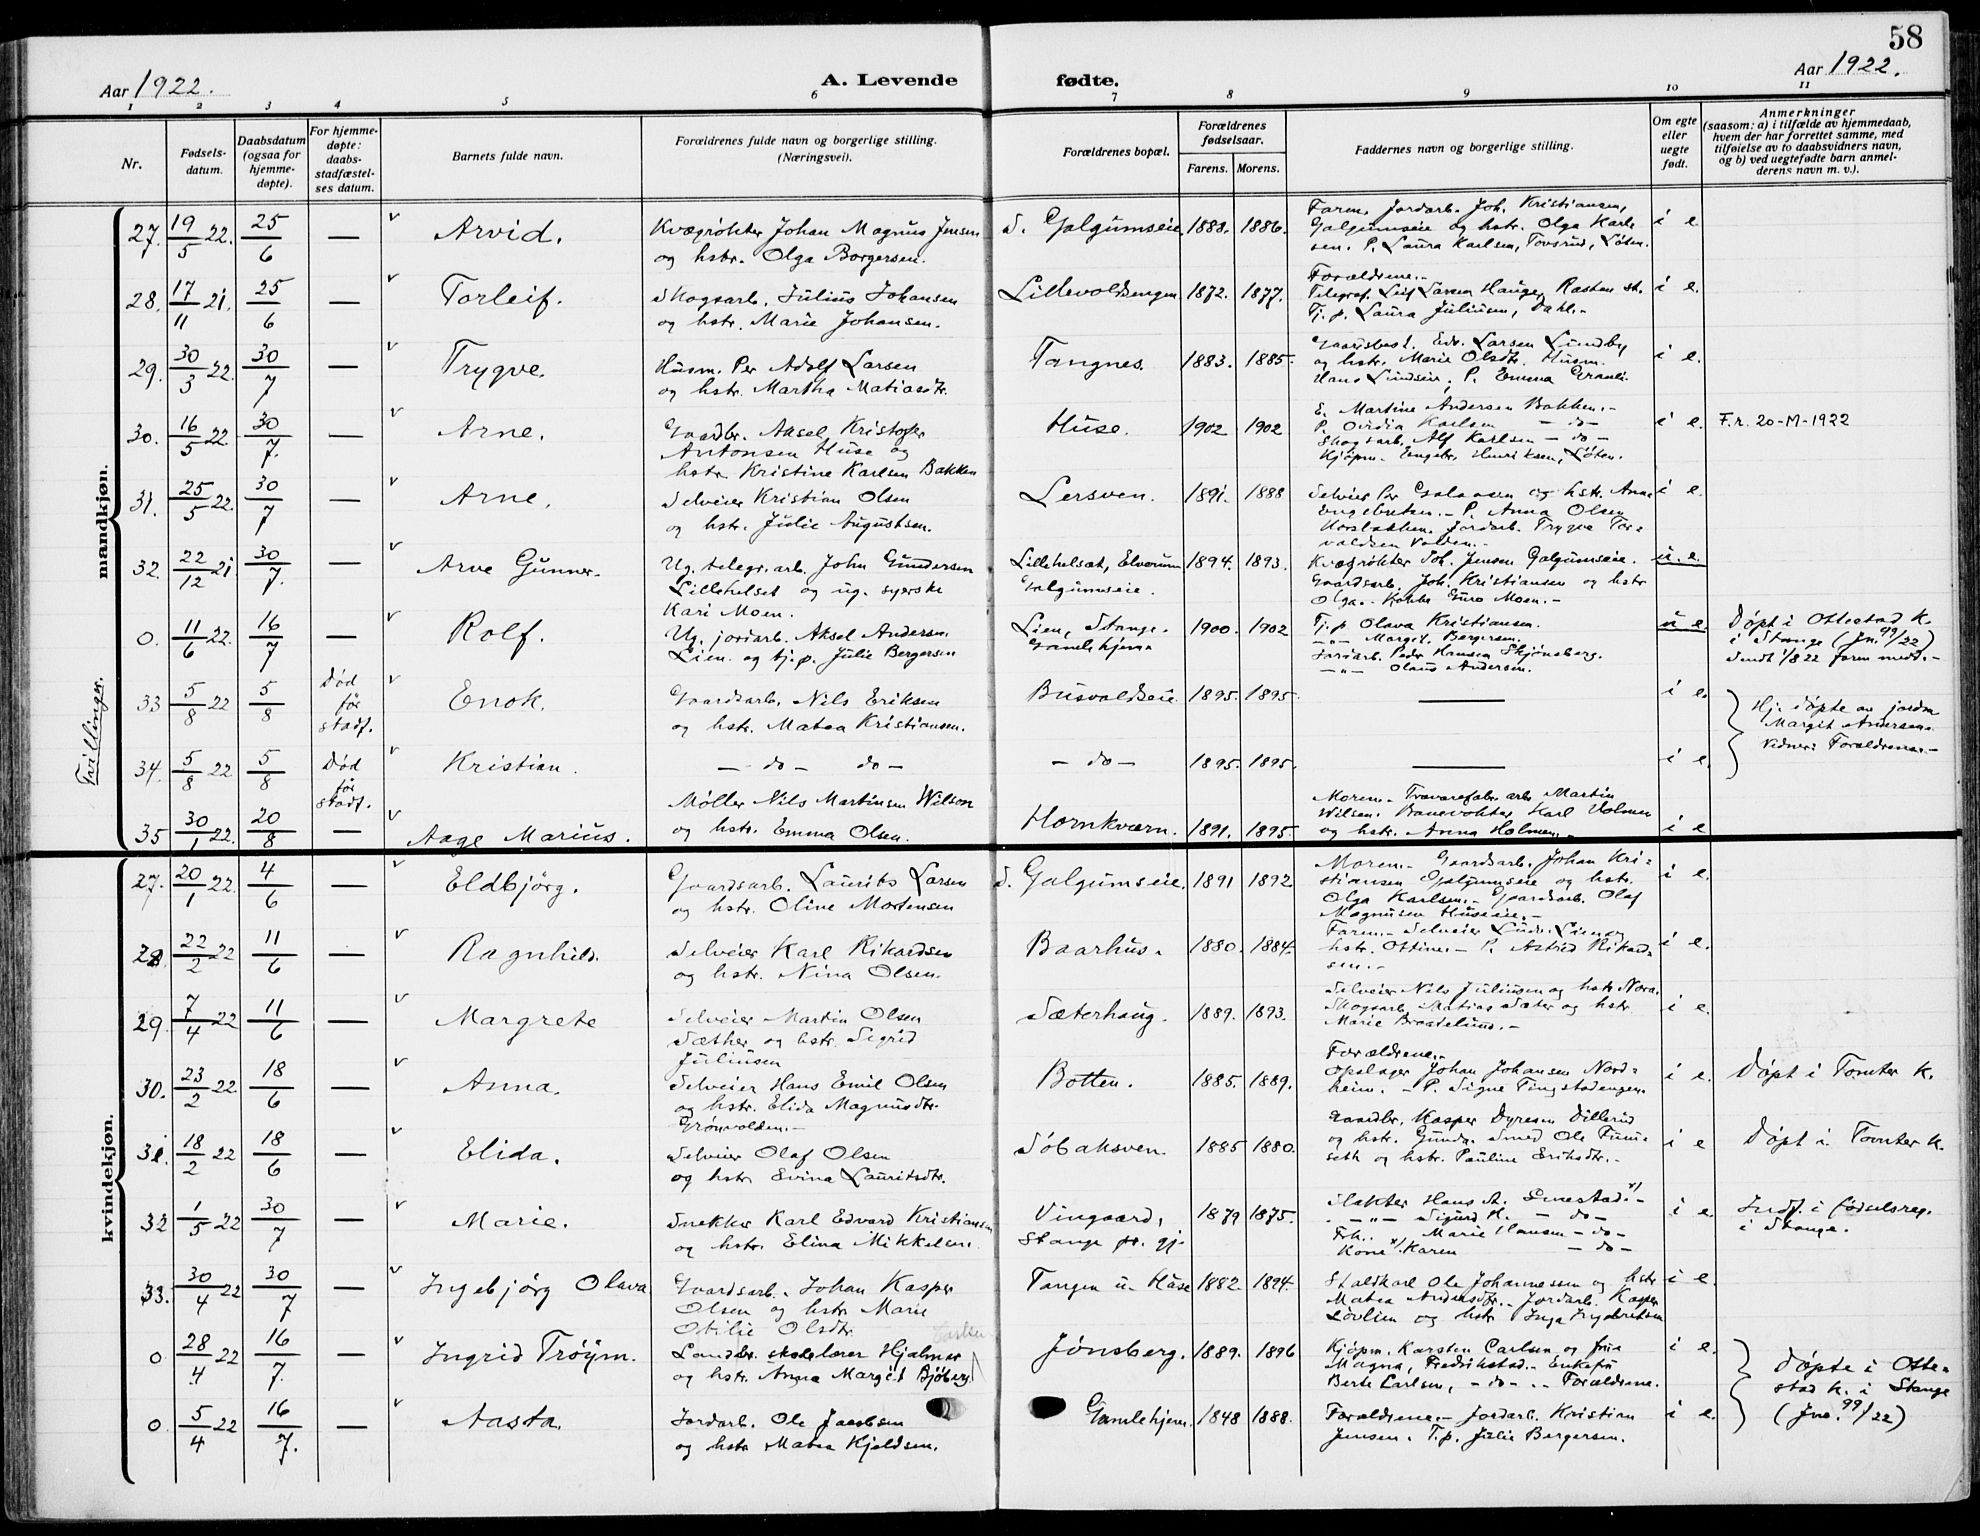 58
Aar 1922.
A. Levende fødte.
Aar 1922.
1 2 3 4 5 6 7 8 9 10 11
Nr.
Fødsels-
datum.
Daabsdatum
(ogsaa for
hjemme-
døpte).
For hjemme-
døpte:
daabs-
stadfæstel-
ses datum.
Barnets fulde navn.
Forældrenes fulde navn og borgerlige stilling.
(Næringsvei).
Forældrenes bopæl.
Forældrenes
fødselsaar.
Farens. Morens.
Faddernes navn og borgerlige stilling.
Om egte
eller
uegte
født.
Anmerkninger
(saasom: a) i tilfælde av hjemmedaab,
hvem der har forrettet samme, med
tilføielse av to daabsvidners navn,
og b) ved uegtefødte barn anmel-
derens navn m. v.).
mandkjøn.
27. 19/5 22. 25/6 — Arvid. Kvægrøkter Johan Magnus Jensen
og hstr. Olga Borgersen.
S. Galgumseie. 1888. 1886.
Faren. Jordarb. Joh. Kristiansen,
Galgumseie og hstr. Olga Karl-
sen. P. Laura Karlsen, Tovsrud, Løten.
i e.
28. 17/11 21. 25/6 — Torleif. Skogsarb. Julius Johansen
og hstr. Marie Johansen.
Lillevoldsengen. 1872. 1877.
Forældrene.-
Telegraf. Leif Larsen Hauge, Rasten st.
Tj. p. Laura Juliusen, Dahl.-
i e.
29. 30/3 22. 30/7 — Trygve. Husm. Per Adolf Larsen
og hstr. Martha Matiasdtr.
Tangnes. 1883. 1885.
Gaardsbest. Edv. Larsen Lundby
og hstr. Marie Olsdtr. Husm.
Hans Lundseie, P. Emma
i e.
30. 16/5 22. 30/7. — Arne. Gaardbr. Aksel Kristofer
Antonsen Huse og
hstr. Kristine Karlsen Bakken
Huse. 1902 1902
E. Martine Andersen Bakken.-
P. Ovidia Karlsen — do —
Skogsarb. Alf Karlsen — do —
Kjøpm. Engebr. Henriksen, Løten.
i e. F.r. 20-M-1922
31. 25/5 22. 30/7 — Arne. Selveier Kristian Olsen
og hstr. Julie Augustsen.
Lersven. 1891. 1888
Selveier Per og hstr. Anne
Engebretsen.- P. Anna Olsen
Jordarb. Trygve Tor-
valdsen Volden.-
i e.
32. 22/12 21 30/7. — Arve Gunner. Ug. telegr.arb. John Gundersen
Lillehelset og ug. syerske
Kari Moen.
Lillehelset, Elverum
Galgumseie. 1894. 1893.
Kvægrøkter Joh. Jensen Galgumseie.
Gaardsarb. Joh. Kristiansen og hstr
Olga.- Moen.-
u. e.
0. 11/6 22. 16/7 — Rolf. Ug. jordarb. Aksel Andersen
Lien. og tj.p. Julie Bergersen
Lien, Stange.
Gamlehjem. 1900. 1902
Tj. p Olava Kristiansen.
— " — Margit Bergersen.
Jordarb. Peder Hansen Skjønsberg.
— " — Olaus Andersen.
u e.
Døpt i Ottestad K.
i Stange (Jn. 99/22)
Sendt 1/8 22 form medd.-
Tvillinger.
33 5/8 22 5/8 Død
før
stadf.
Enok. Gaardsarb. Nils Eriksen
og hstr. Matea Kristiansen.
Busvoldseie. 1895. 1895. — i e.
Hj. døpte av jordm
Margit Andersen.
Vidner: Forældrene.-
34. 5/8 22 5/8 Død
før
stadf.
Kristian. — do — do — — do — 1895. 1895. — i e.
35 30/1 22. 20/8 — Aage Marius. Møller Nils Martinsen Wilson
og hstr. Emma Olsen.
Hornkværn. 1891. 1895.
Moren.- Trævarefabr. arb. Martin
Wilsen. Banevokter Karl Holmen
og hstr. Anna Holmen.-
i e
kvindekjøn.
27. 20/1 22. 4/6 — Eldbjörg. Gaardsarb. Laurits Larsen
og hstr. Oline Mortensen
S. Galgumseie. 1891 1892.
Moren.- Gaardsarb. Johan Kri-
stiansen Galgumseie og hstr.
Olga Karlsen.- Gaardsarb. Olaf
Magnusen Huseeie.-
i e.
28. 22/2 22 11/6 — Ragnhild. Selveier Karl Rikardsen
og hstr. Nina Olsen.
Baarhus. 1880. 1884.
Faren.- Selveier Ludv. Lien og
hstr. Ottine.- P. Astrid Rikard-
sen.-
i e.
29. 7/4 22 11/6 — Margrete Selveier Martin Olsen
Sæther og hstr. Sigrid
Juliusen
Sæterhaug. 1889. 1893.
Selveier Nils Juliussen og hstr Nora.
Skogsarb. Matias Sæter og hstr.
Marie Braatelund.-
i e.
30. 23/2 22. 18/6 — Anna. Selveier Hans Emil Olsen
og hstr. Elida Magnusdtr.
Grønvolden.-
Botten. 1885. 1889.
Forældrene.-
Opslager Johan Johansen Nord-
heim.- P. Signe Tingstadengen.
i e. Døpt i Tomter K.
31. 18/2 22 18/6 — Elida. Selveier Olaf Olsen
og hstr. Evina Lauritsdtr.
Söbaksven. 1885 1880.
Gaardbr. Kasper Dyresen Dillerud
og hstr. Gunda. Smed Ole Furu-
seth og hstr. Pauline Eriksdtr.-
i e Døpt i Tomter K.
32 1/5 22 30/7 — Marie. Snekker Karl Edvard Kristiansen
og hstr. Elina Mikkelsen.
Vingaard,
Stange pr. gj. 1879 1875.
Slakter Hans A. Imestad x)-
— " — Sigurd H. — do —
Frk. Marie Hansen — do —
Kone x) Karen — do —
i e. Indf. i fødselsreg.
i Stange.
33. 30/4 22 30/7 — Ingebjörg Olava Gaardsarb. Johan Kasper
Olsen og hstr Marie
Otilie Olsdtr.
Tangen u. Huse 1882. 1894.
Staldkarl Ole Johannessen og hstr
Matea Andersdtr. Jordarb. Kasper
Lövlien og hstr. Inga Fredriksen
i e.
0 28/4 22 16/7. — Ingrid Tröym. Landbr. skolelærer Hjalmar Carlsen
og hstr. Anna Margit Bjøberg
Jønsberg. 1889. 1896
Kjøpm. Karsten Carlsen og frue
Magna, Fredrikstad.- Enkefru
Berte Carlsen, — do — .- Forældrene.
i e.
Døpte i Otte-
stad K. i Stange
(Jnr. 99/22)
0 5/4 22 16/7. — Aasta. Jordarb. Ole Jacobsen
og hstr Matea Kjeldsen.
Gamlehjem. 1848 1888.
Forældrene.- Jordarb. Kristian
Jensen. T.p. Julie Bergersen.
i e.